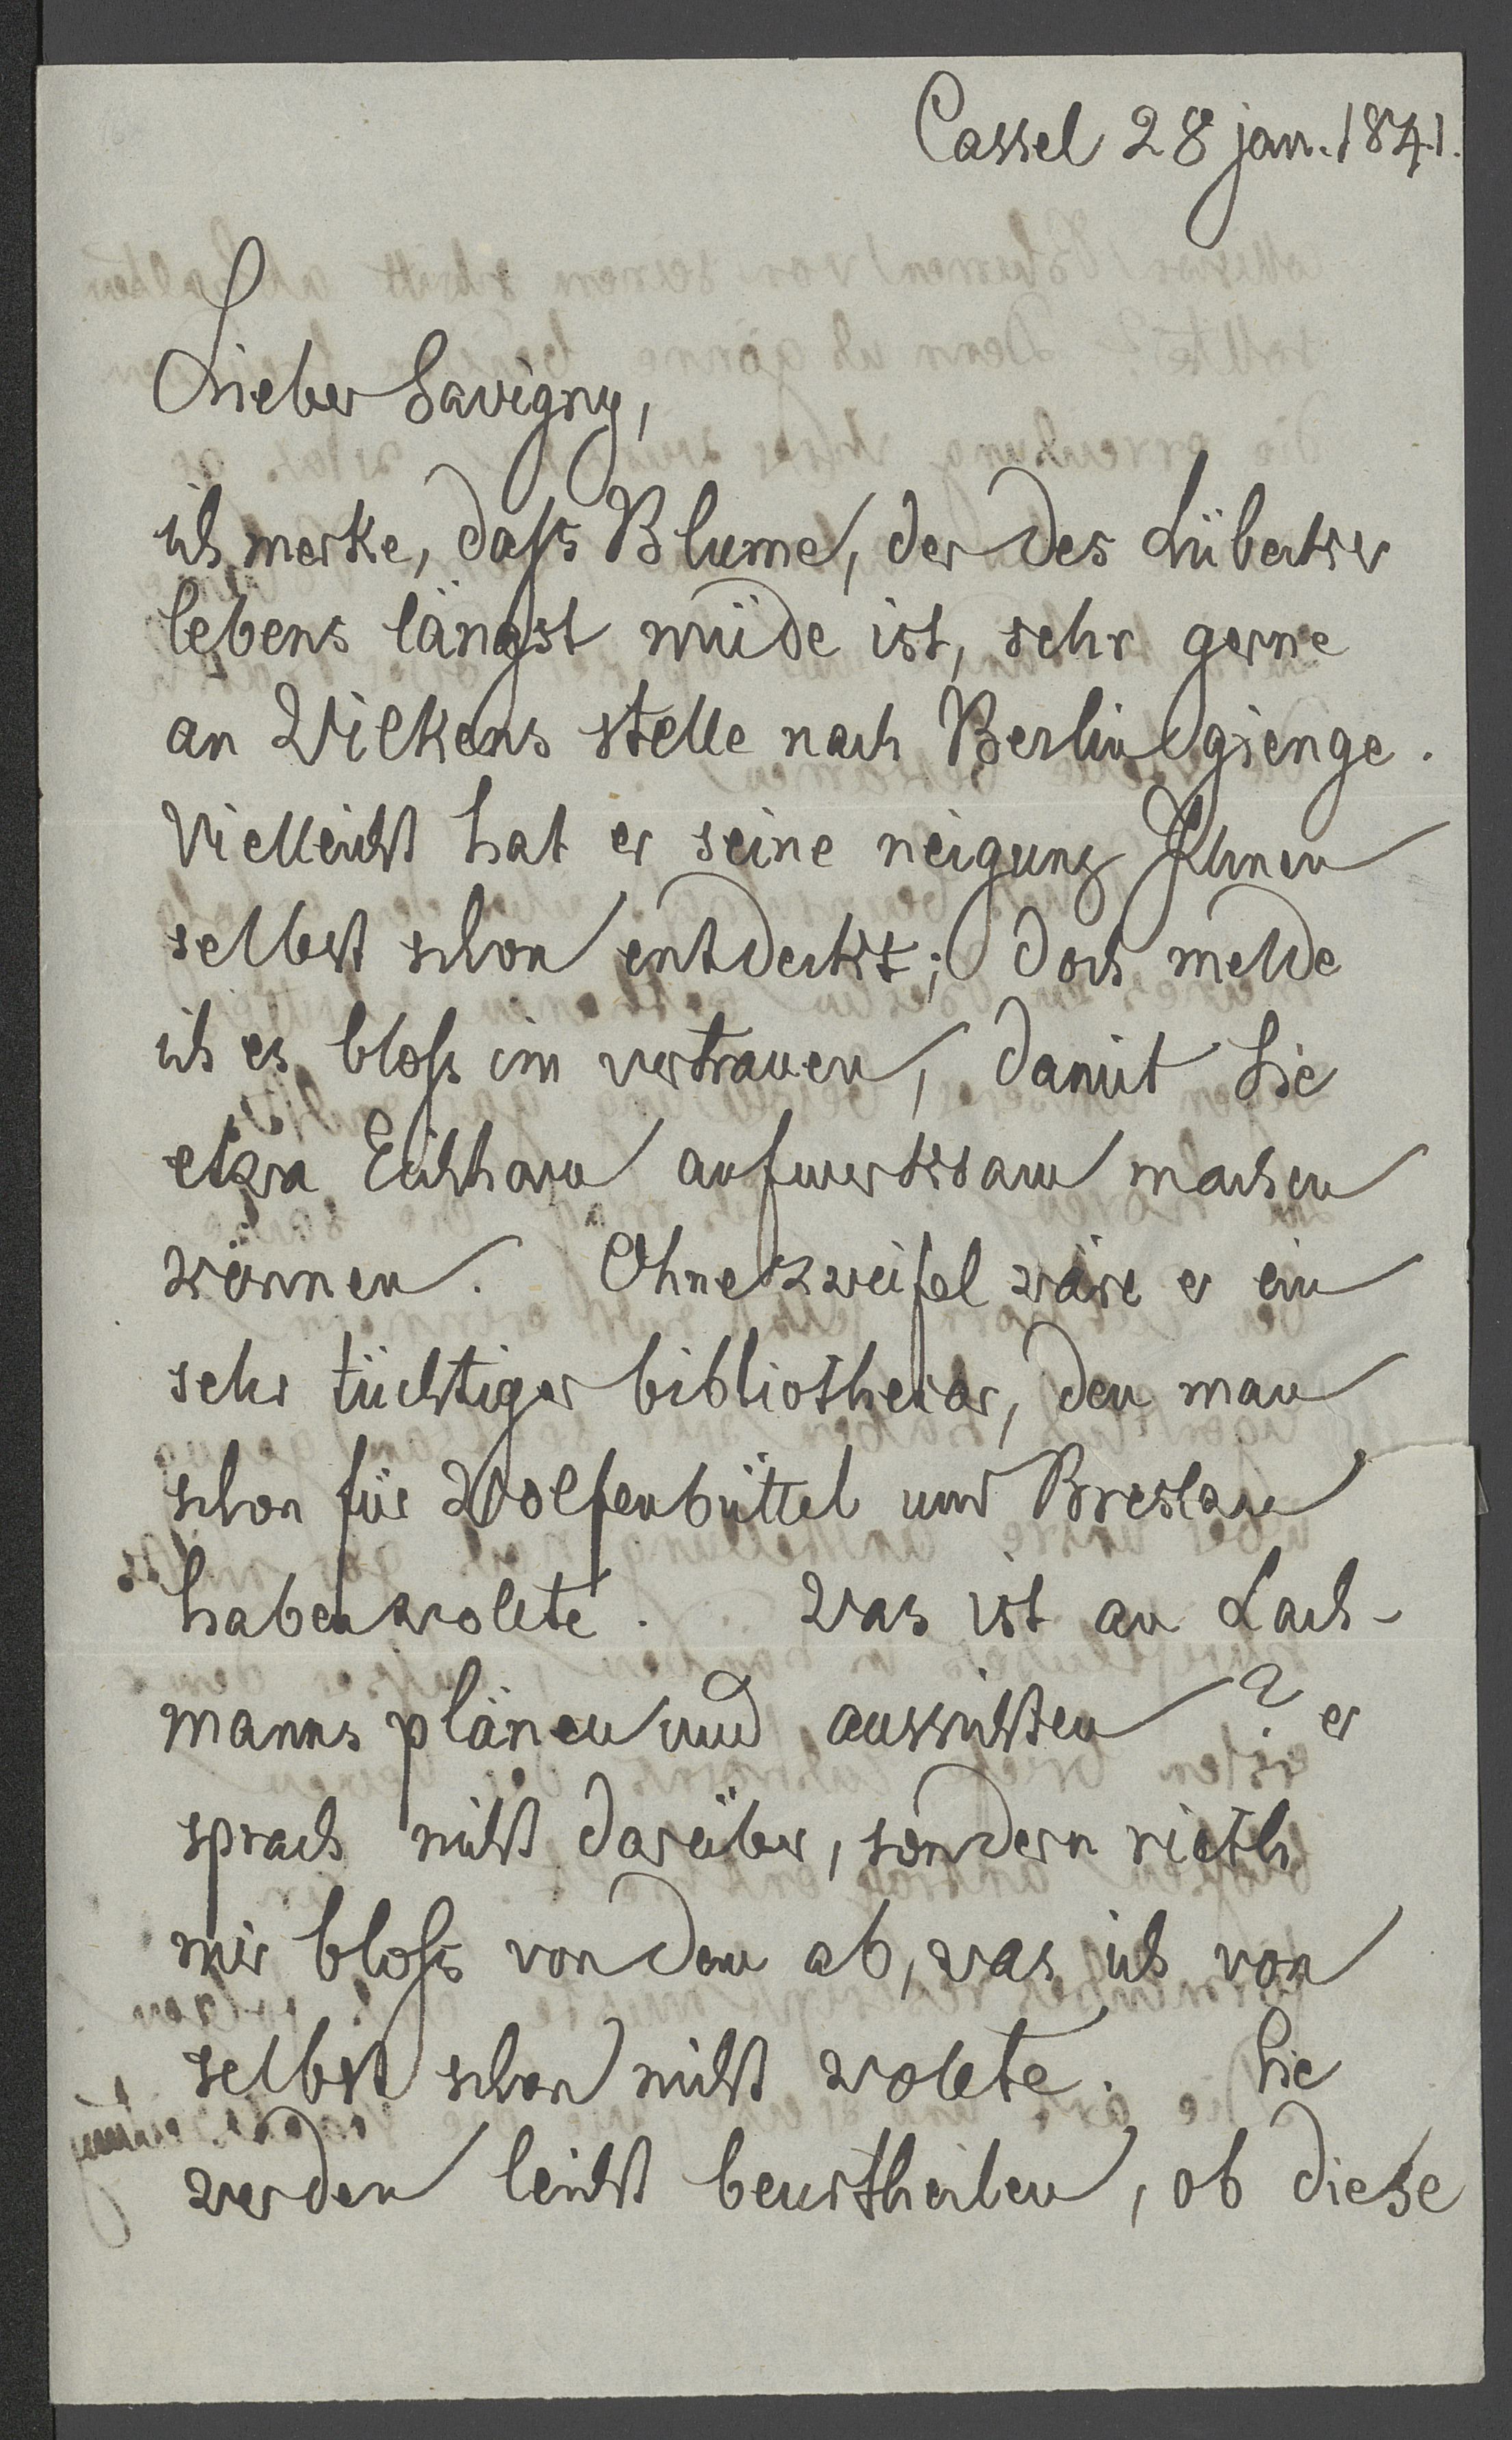 Cassel 28 jan. 1841.
Lieber Savigny,
ich merke, daſs Blume, der des Lübecker
lebens längst müde ist, sehr gerne
an Wilkens stelle nach Berlin gienge.
Vielleicht hat er seine neigung Ihnen
selbst schon entdeckt; doch melde
ich es bloſs im vertrauen, damit Sie
etwa Eichhorn aufmerksam machen
können. Ohne zweifel wäre er ein
sehr tüchtiger bibliothecar, den man
schon für Wolfenbüttel und Breslau
haben wollte. Was ist an Lach-
manns plänen und aussichten? er
sprach nicht darüber, sondern rieth
mir bloſs von dem ab, was ich von
selbst schon nicht wollte. Sie
werden leicht beurtheilen, ob diese